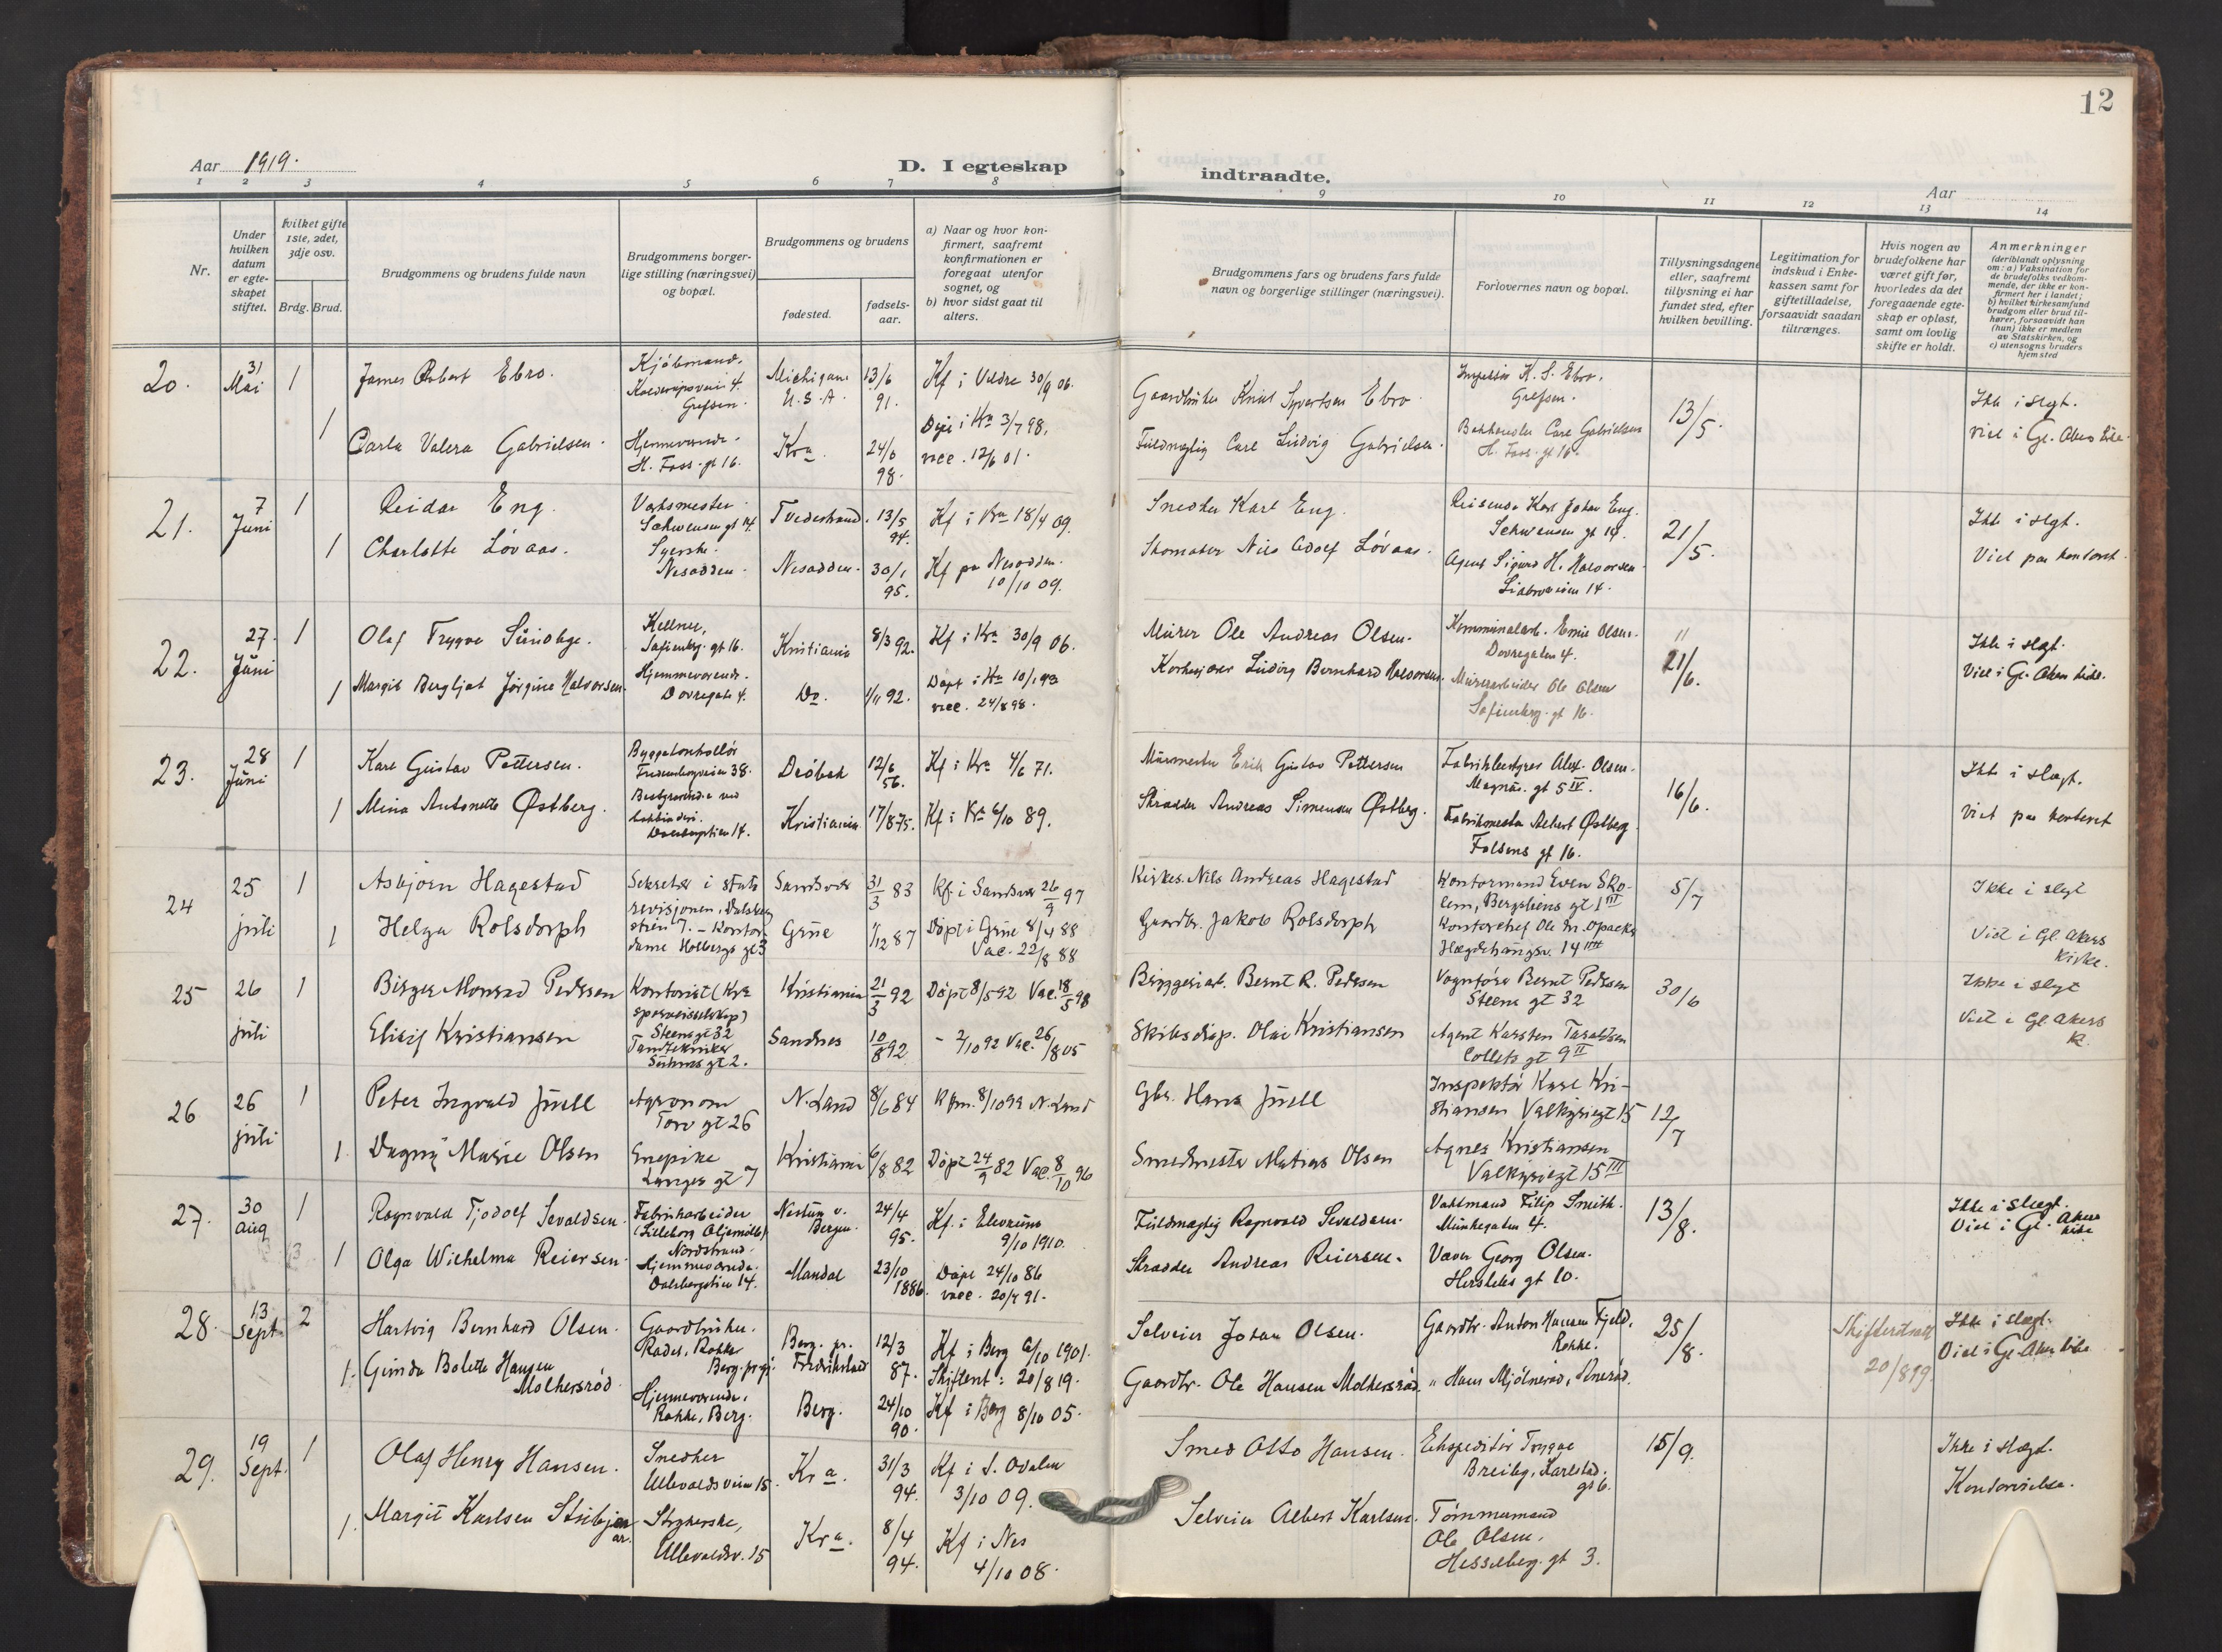 12
Aar 1919.
D. I egteskap
indtraadte.
Aar
1 2 3 4 5 6 7 8
9 10 11 12 13 14
Nr.
Under
hvilken
datum
er egte-
skapet
stiftet.
hvilket gifte
1ste, 2det,
3dje osv.
Brdg. Brud.
Brudgommens og brudens fulde navn
Brudgommens borger-
lige stilling (næringsvei)
og bopæl.
Brudgommens og brudens
fødested.
fødsels-
aar.
a) Naar og hvor kon-
firmert, saafremt
konfirmationen er
foregaat utenfor
sognet, og
b) hvor sidst gaat til
alters.
Brudgommens fars og brudens fars fulde
navn og borgerlige stillinger (næringsvei).
Forlovernes navn og bopæl.
Tillysningsdagene
eller, saafremt
tillysning ei har
fundet sted, efter
hvilken bevilling.
Legitimation for
indskud i Enke-
kassen samt for
giftetilladelse,
forsaavidt saadan
tiltrænges.
Hvis nogen av
brudefolkene har
været gift før,
hvorledes da det
foregaaende egte-
skap er opløst,
samt om lovlig
skifte er holdt.
Anmerkninger
(deriblandt oplysning
om: a) Vaksination for
de brudefolks vedkom-
mende, der ikke er kon-
firmert her i landet;
b) hvilket kirkesamfund
brudgom eller brud til-
hører, forsaavidt han
(hun) ikke er medlem
av Statskirken, og
c) utensogns bruders
hjemsted
20.
31
Mai
1
James Robert Ebro.
Kjøbmand.
4.
Grefsen.
Michigan
U.S.A.
13/6
91.
Kf i Veldre 30/9 06.
Gaardbruker Knut Syvertsen Ebro
K. S. Ebro,
Grefsen.
13/5.
Ikke i slegt.
Viet i Gl. Akers kirke.
1
Carla Valera Gabrielsen.
Hjemmeværende.
H. Foss. gt 16.
Kra.
24/6
98.
Døpt i Kra 3/7 98.
vacc. 12/6 01.
Fuldmægtig Carl Ludvig Gabrielsen.
Carl Gabrielsen
H. Foss. gt 16.
21.
7
Juni
1
Reidar Eng.
Verksmester
Schwensens gt 14.
Tvedestrand.
13/5
94.
Kf i Kra 18/4 09.
Snedker Karl Eng.
Reisende Karl Johan Eng.
Schwensens gt 14.
21/5.
Ikke i slegt.
Viet paa kontoret.
1
Charlotte Løvaas.
Syerske.
Nesodden.
Nesodden.
30/1
95.
Kf paa Nesodden.
10/10 09.
Skomaker Nils Adolf Løvaas.
Agent Sigurd H. Halvorsen
Liabroveien 14.
22.
27.
Juni
1
Olaf Trygve Sundbye.
Kellner,
Sofienbg. gt 16.
Kristiania
8/3 92.
Kf i Kra 30/9 06.
Murer Ole Andreas Olsen.
Kommunalarb. Emil Olsen.
Dovregaten 4.
21/6.
Ikke i slegt.
Viet i Gl. Akers kirke.
1
Margit Bergljot Jørgine Halvorsen
Hjemmeværende.
Dovregate 4.
Do.
1/11 92.
Døpt i Kra 10/1 93
vacc. 24/8 98.
Ludvig Bernhard Halvorsen.
Murerarbeider Ole Olsen
Sofienbrg. gt 16.
23.
28
Juni
1
Karl Gustav Pettersen.
Byggekontrollør
38.
Drøbak
12/6
56.
Kf i Kra 4/6 71.
Murmester Erik Gustav Pettersen
Fabrikbestyrer Alex. Olsen.
Magnus. gt 5 IV.
16/6.
Ikke i slegt.
Viet paa kontoret
1
Mina Antonette Østberg.
Bestyrerinde ved
Dalsbergstien 14.
Kristiania
17/8 75.
Kf i Kra 6/10 89.
Skrædder Andreas Simensen Østberg.
Fabrikmester Albert Østberg
Falsens gt 16.
24
25
juli
1
Asbjørn Hagestad
Sekretær i stats
revisjonen, Dalsberg
stien 7. – Kontor
Sandsvær
31/3 83
Kf. i Sandsvær 26/9 97
Kirkes. Nils Andreas Hagestad
Kontormand Even Sko-
lem, Bergsliens gt 1 III
5/7
Ikke i slegt
1
Helga Rolsdorph
dame Holbergs gt 3
Grue
1/12 87
Døpt i Grue 8/4 88
Vac. 22/8 88
Gaardbr. Jakob Rolsdorph
Kontorchef Ole M. Opaker
Hægdehaugsv. 14 III
Viet i Gl. Akers
Kirke.
25
26
juli
1
Birger Monrad Pedersen
Kontorist (Kra
sporveisselskap)
Steensgt 32
Kristiania
21/3 92
Døpt 8/5 92 Vac. 18/5 98
Bryggeriarb. Bernt R. Pedersen
Vognfører Bernt Pedersen
Steens gt 32
30/6
Ikke i slegt
Elisif Kristiansen
Tandtekniker
Suhms gt 2.
Sandnes
10/8 92
– 2/10 92 Vac. 26/8 05
Skibsdisp. Olai Kristiansen
Agent Karsten Taraldsen
Colletts gt 9 II
Viet i Gl Akers
K.
26
26
juli
1
Peter Ingvald Juell
Agronom
Torv gt 26
N. Land
8/6 84
Kfm. 8/10 99 N. Land
Gbr. Hans Juell
Inspektør Karl Kri-
stiansen Valkyriegt 15
12/7
1
Dagny Marie Olsen
Enepike
Langes gt 7
Kristiania
6/8 82
Døpt 24/9 82 Vac. 8/10 96
Smedmester Matias Olsen
Agnes Kristiansen
Valkyriegt 15 III
27.
30
Aug
1
Ragnvald Tjodolf Sevaldsen.
Fabrikarbeider
(Lilleborg Oljemølle)
Nordstrand.
Nestun v.
Bergen.
24/4
95.
Kf. i Elverum
9/10 1910.
Fuldmægtig Ragnvald Sevaldsen.
Vaktmand Filip Smith.
Munkegaten 4.
13/8.
Ikke i slegt.
Viet i Gl. Akers
kirke
1
Olga Wilhelma Reiersen.
Hjemmeværende.
Dalsbergstien 14.
Mandal
23/10
1886.
Døpt 24/10 86
vacc. 20/7 91.
Skrædder Andreas Reiersen.
Væver Georg Olsen.
Herslebs gt 10.
28.
13
Sept.
2
Hartvig Bernhard Olsen.
Gaardbruker.
Rokke
Berg. pr.gj.
Borg. pr.
Fredrikstad
12/3
87.
Kf i Berg 6/10 1901.
Skifteut: 20/8 19.
Selveier Johan Olsen.
Gaardbr. Anton Hansen Fjeld,
Rokke.
25/8.
Skifteattest
20/8 19.
Ikke i slegt.
Viet i Gl. Aker kirke
1.
Gunda Bolette Hansen
Molkersrød
Hjemmeværende,
Rokke, Berg.
Berg.
24/10
90.
Kf i Berg 8/10 05.
Gaardbr. Ole Hansen Molkersrød.
" Hans Mjølnerød,
29.
19
Sept.
1
Olaf Henry Hansen.
Snedker
Ullevaldsveien 15.
Kra.
31/3
94.
Kf i S. Odalen
3/10 09.
Smed Otto Hansen.
Ekspeditør Trygve
Breiby, Karlstad.
gt 6.
15/9.
Ikke i slegt.
Kontorvielse.
1.
Margit Karlsen
Strykerske,
Ullevaldsv. 15
Kra.
8/4
94.
Kf i Nes
4/10 08.
Selveier Albert Karlsen.
Tømmermand
Ole Olsen,
Hesselberg. gt 3.